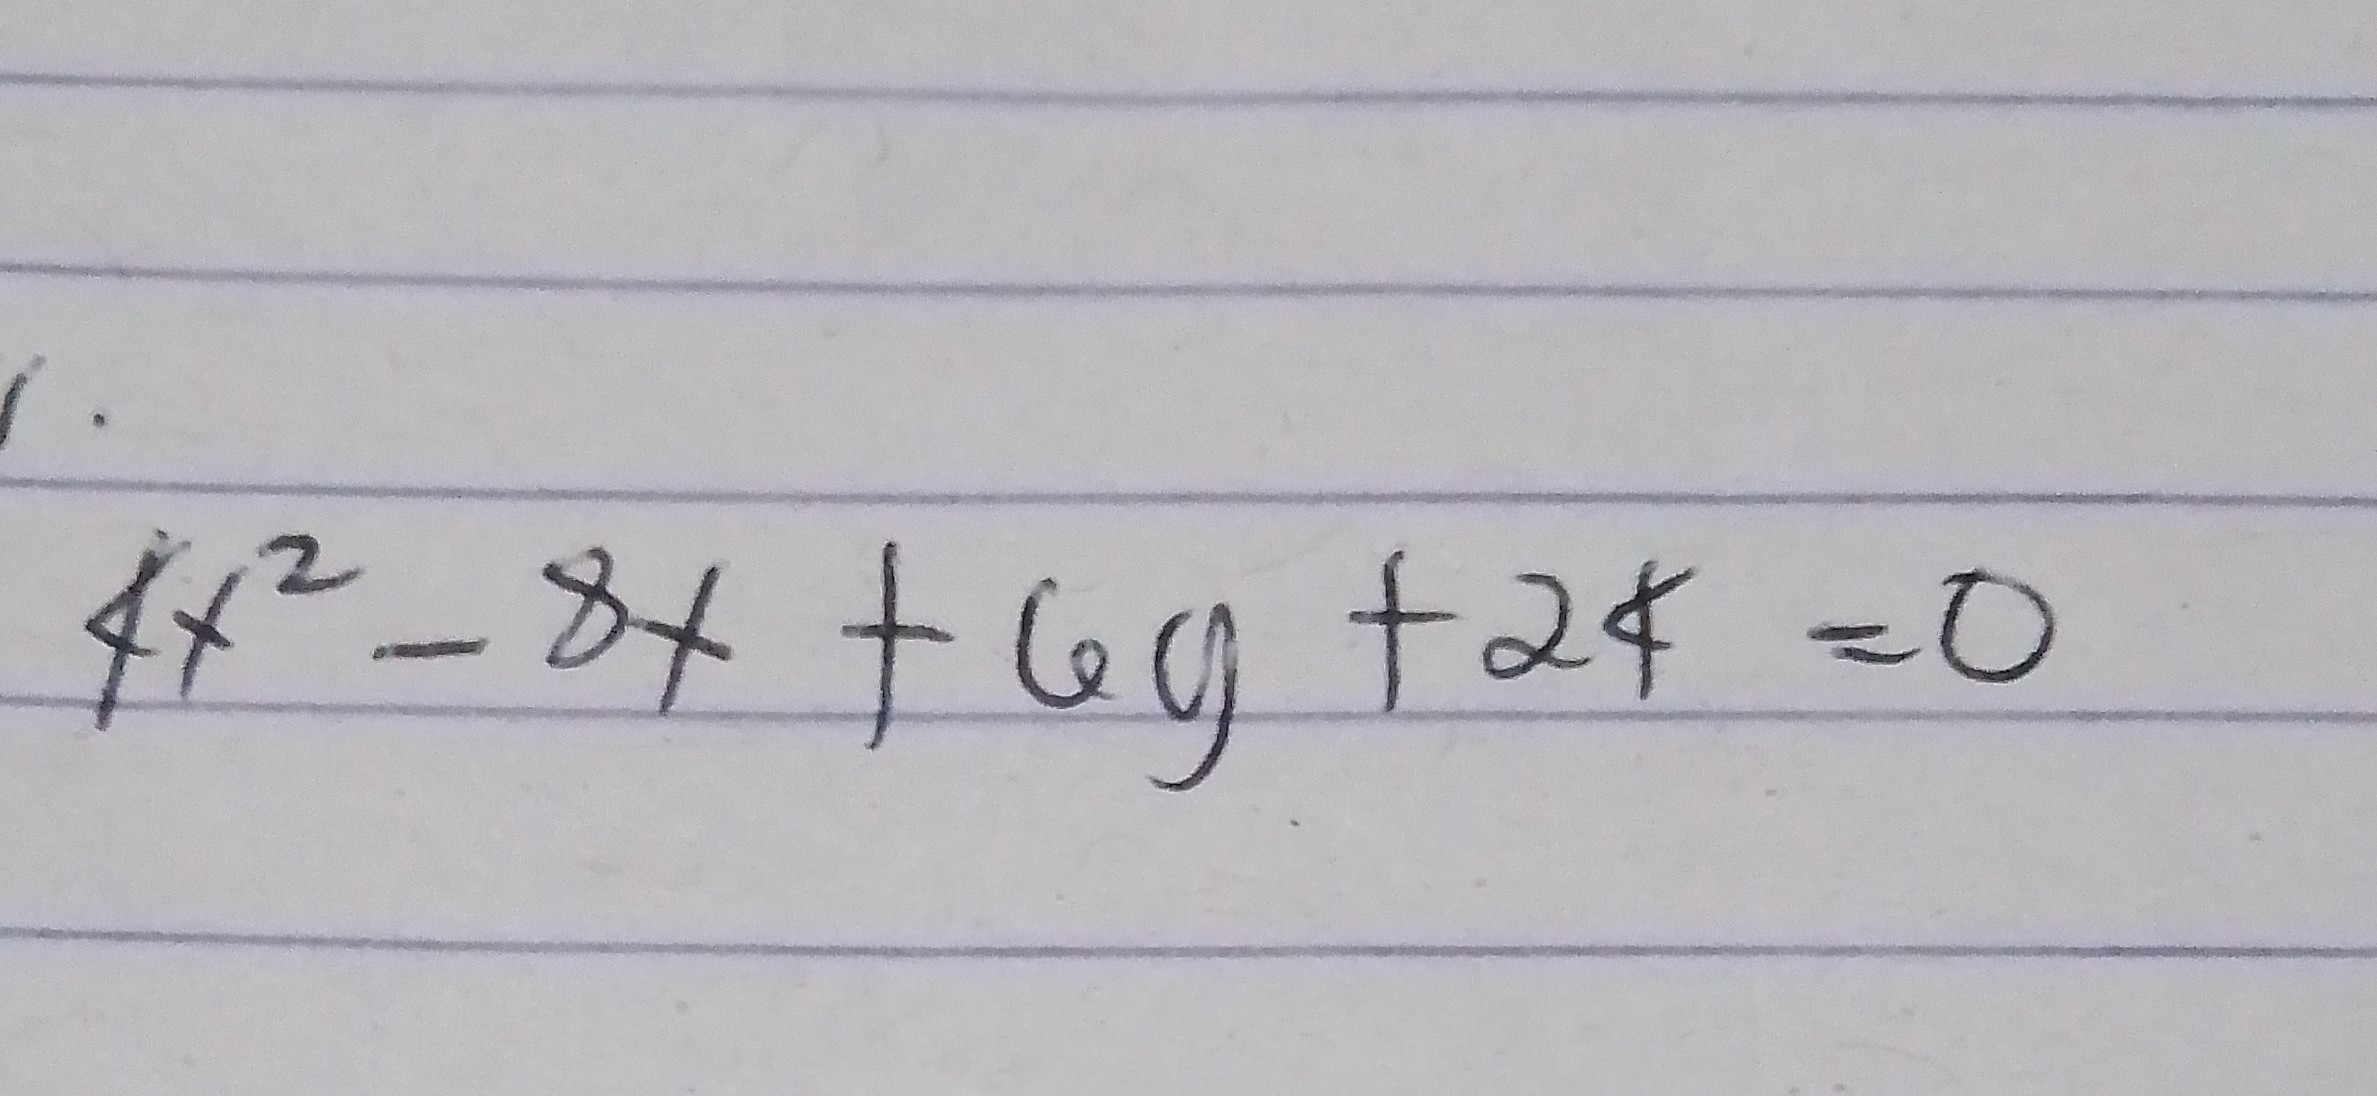 1.
4x² - 8x + 6y + 24 = 0